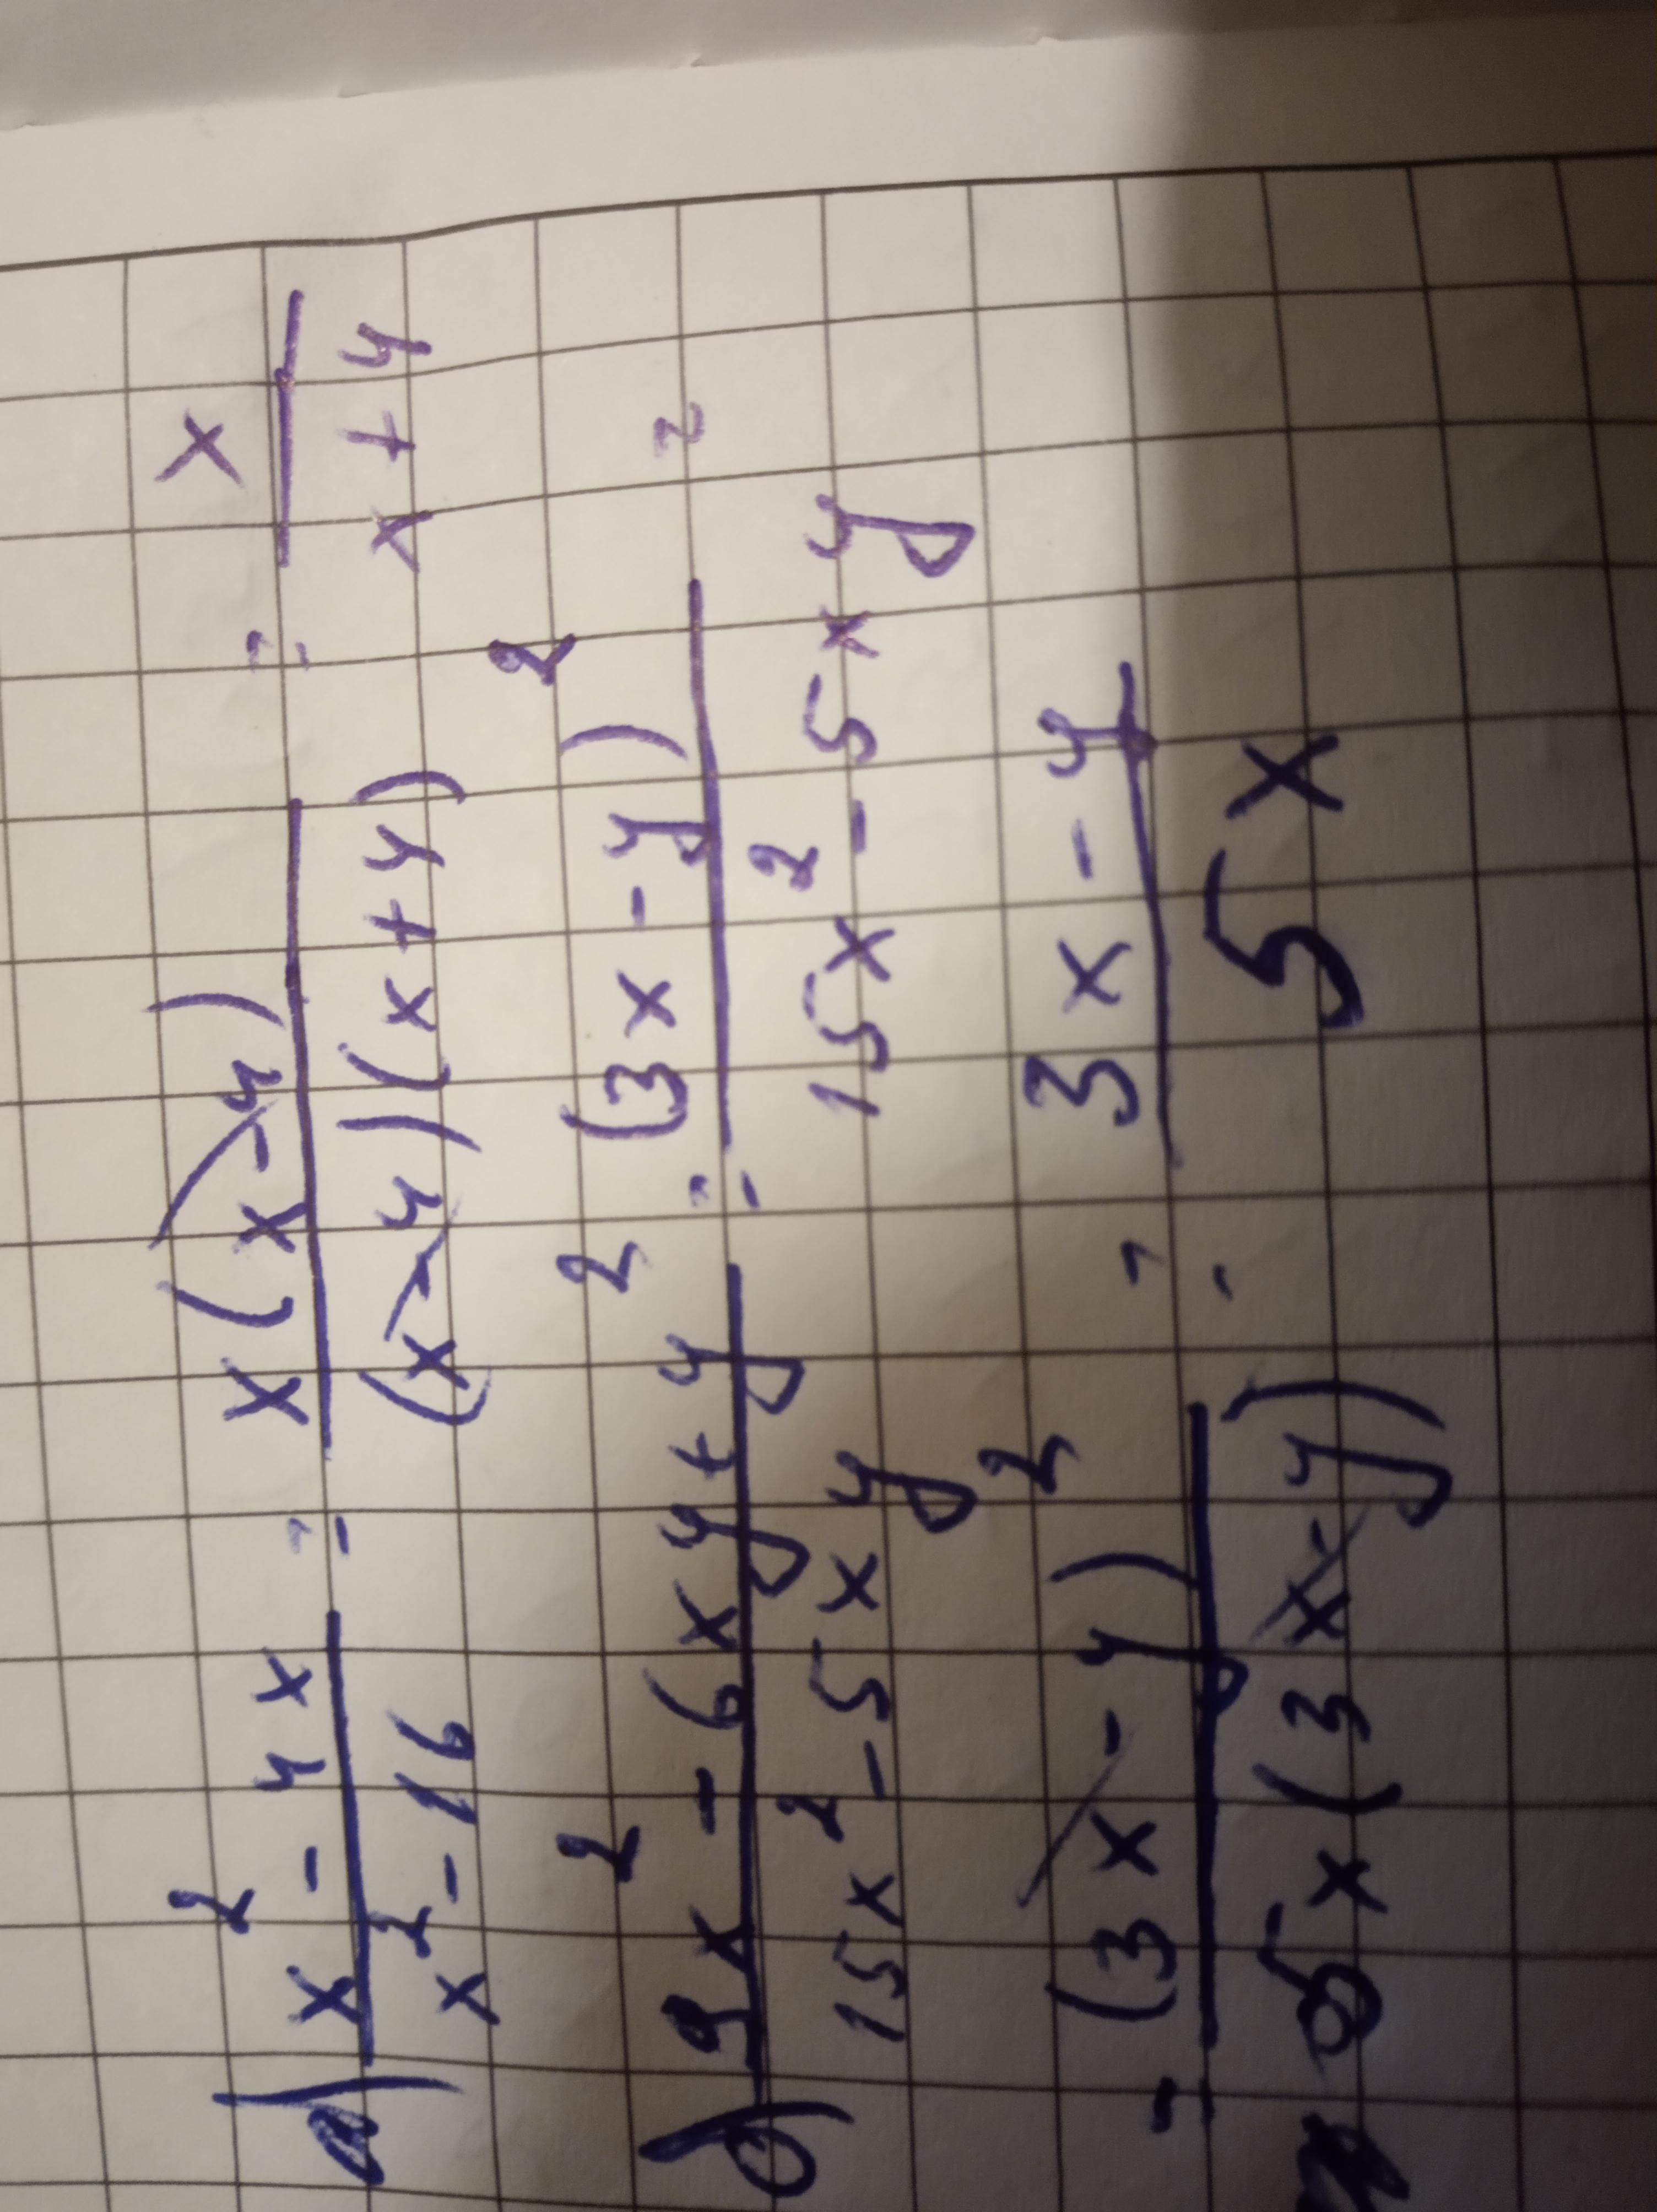 а) \frac{x² - 4x}{x² - 16} = \frac{x(x - 4)}{(x - 4)(x + 4)} = \frac{x}{x + 4}
б) \frac{9x² - 6xy + y²}{15x² - 5xy} = \frac{(3x - y)²}{15x² - 5xy} =
= \frac{(3x - y)²}{5x(3x - y)} = \frac{3x - y}{5x}